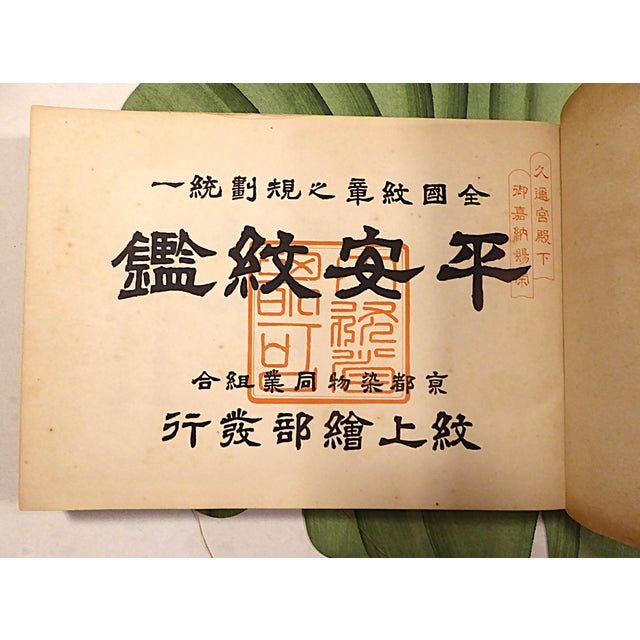 久邇宮殿下
御嘉納賜
全國紋章之規劃統一
平安紋鑑
京都染物同業組合
紋上繪部發行